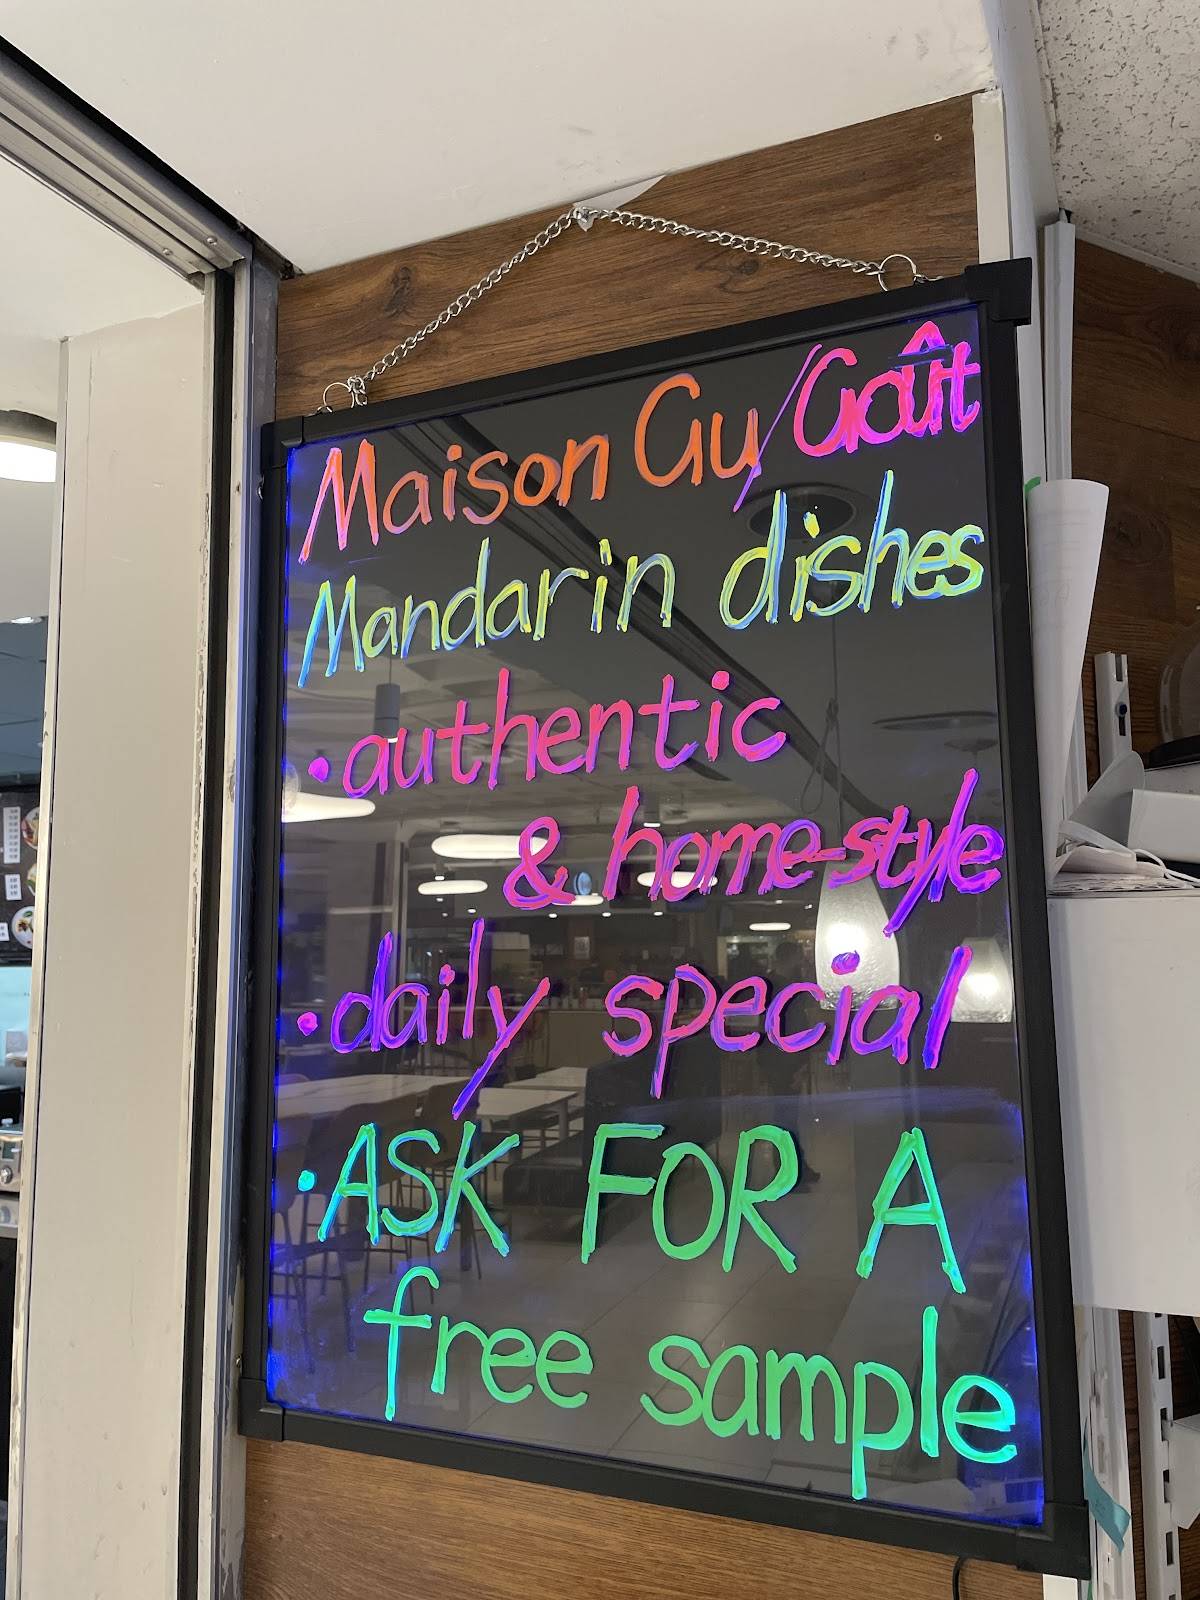 Maison Gu/Goût
Mandarin dishes
•authentic
& home-style
•daily special
•ASK FOR A
free sample